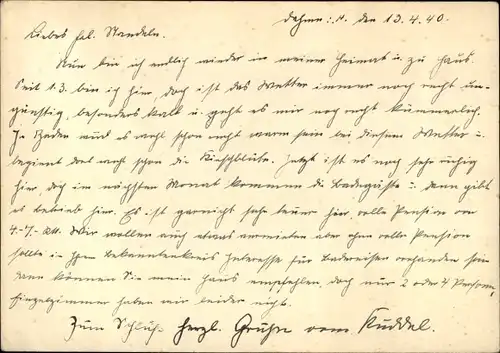 Dahme: H. den 13.4.40.
Liebes Frl. Standeln.
Nun bin ich endlich wieder in meiner Heimat u. zu Haus.
Seit 1.3. bin ich hier, doch ist das Wetter immer noch recht un-
günstig, besonders kalt u. geht es mir noch recht kümmerlich.
In Baden wird es wohl schon recht warm sein bei diesem Wetter u.
beginnt dort wohl schon die Kirschblüte. Jetzt ist es noch sehr ruhig
hier, doch im nächsten Monat kommen die Badegäste u. dann gibt
es Betrieb hier. Es ist garnicht sehr teuer hier, volle Pension von
4.-7. RM. Wir wollen auch etwas vermieten aber ohne volle Pension
sollte in Ihrem Bekanntenkreis Interesse für Badereisen vorhanden sein
dann können Sie mein Haus empfehlen, doch nur 2 oder 4 Personen,
Einzelzimmer haben wir leider nicht.
Zum Schluß herzl. Grüße vom Kuddel.